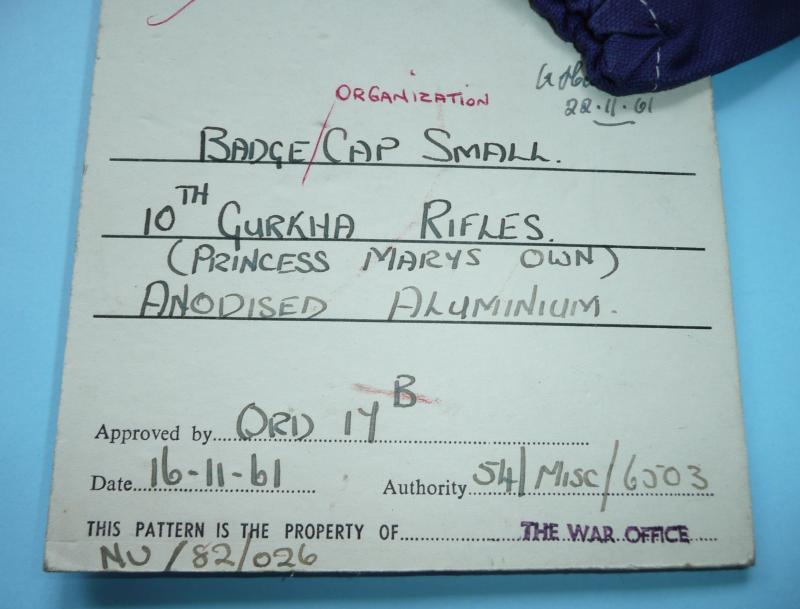 ORGANIZATION
22.11.61
BADGE / CAP SMALL.
10TH GURKHA RIFLES.
(PRINCESS MARYS OWN)
ANODISED ALUMINIUM.
B
Approved by ORD 17
Date 16-11-61 Authority 54/MISC/6503
THIS PATTERN IS THE PROPERTY OF THE WAR OFFICE
NU/82/026